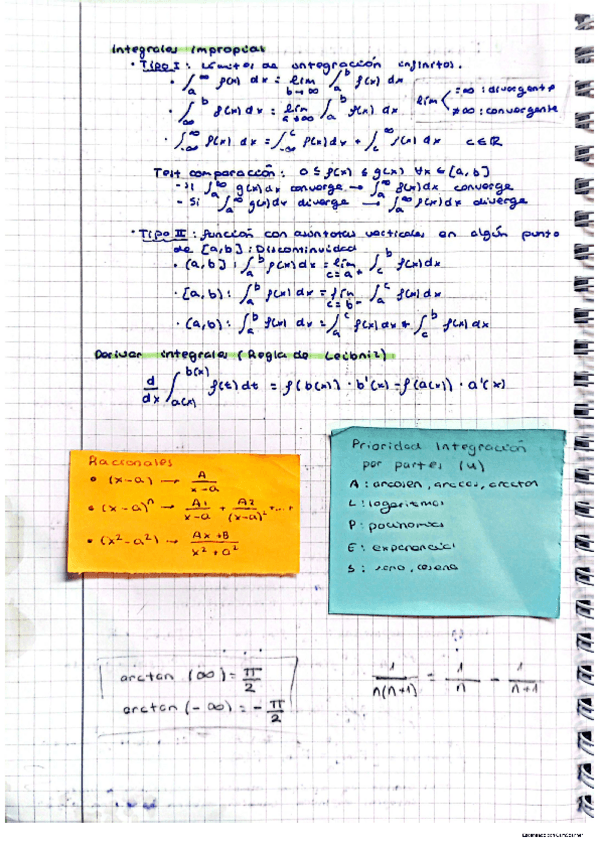 Integrales Impropias
· Tipo I: Límites de integración infinitos.
· ∫_a^∞ f(x) dx = lim_{b→∞} ∫_a^b f(x) dx
lim < =∞ : divergente
≠∞ : convergente
· ∫_∞^b f(x) dx = lim_{a→∞} ∫_a^b f(x) dx
· ∫_{-∞}^∞ f(x) dx = ∫_{-∞}^c f(x) dx + ∫_c^∞ f(x) dx c∈ℝ
Test comparación: 0 ≤ f(x) ≤ g(x) ∀x ∈ [a,b]
- Si ∫_a^∞ g(x) dx converge → ∫_a^∞ f(x) dx converge
- Si ∫_a^∞ g(x) dx diverge → ∫_a^∞ f(x) dx diverge
· Tipo II: función con asíntotas verticales en algún punto
de [a,b]: Discontinuidad
· (a,b]: ∫_a^b f(x) dx = lim_{c=a+} ∫_c^b f(x) dx
· [a,b): ∫_a^b f(x) dx = lim_{c=b-} ∫_a^c f(x) dx
· (a,b): ∫_a^b f(x) dx = ∫_a^c f(x) dx + ∫_c^b f(x) dx
Derivar integrales (Regla de Leibniz)
d/dx ∫_{a(x)}^{b(x)} f(t) dt = f(b(x)) · b'(x) - f(a(x)) · a'(x)
Racionales
• (x-a) → A/(x-a)
• (x-a)^n → A1/(x-a) + A2/(x-a)² + ...
• (x²-a²) → (Ax+B)/(x²+a²)
Prioridad Integración
por partes (u)
A: arcosen, arccos, arctan
L: logaritmos
P: polinomios
E: exponencial
S: seno, coseno
arctan (∞) = π/2
arctan (-∞) = -π/2
1/(n(n+1)) = 1/n - 1/(n+1)